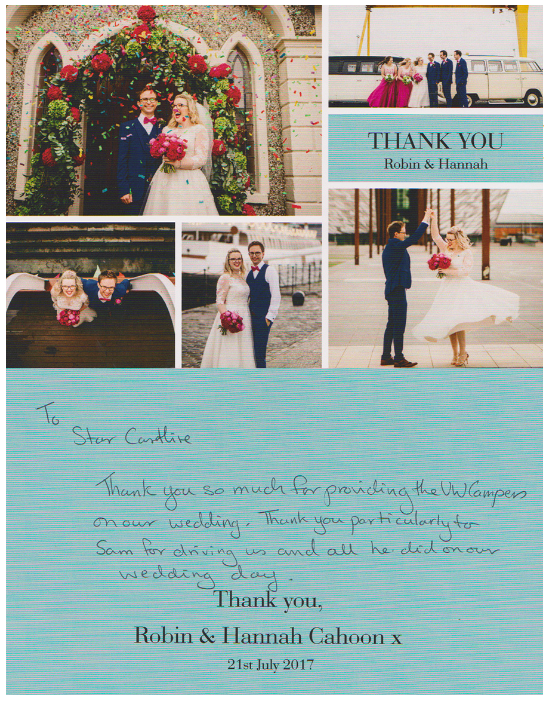 THANK YOU
Robin & Hannah
To
Star Cardlire
Thank you so much for providing the VW Campers
on our wedding. Thank you particularly to
Sam for driving us and all he did on our
wedding day.
Thank you,
Robin & Hannah Cahoon x
21st July 2017